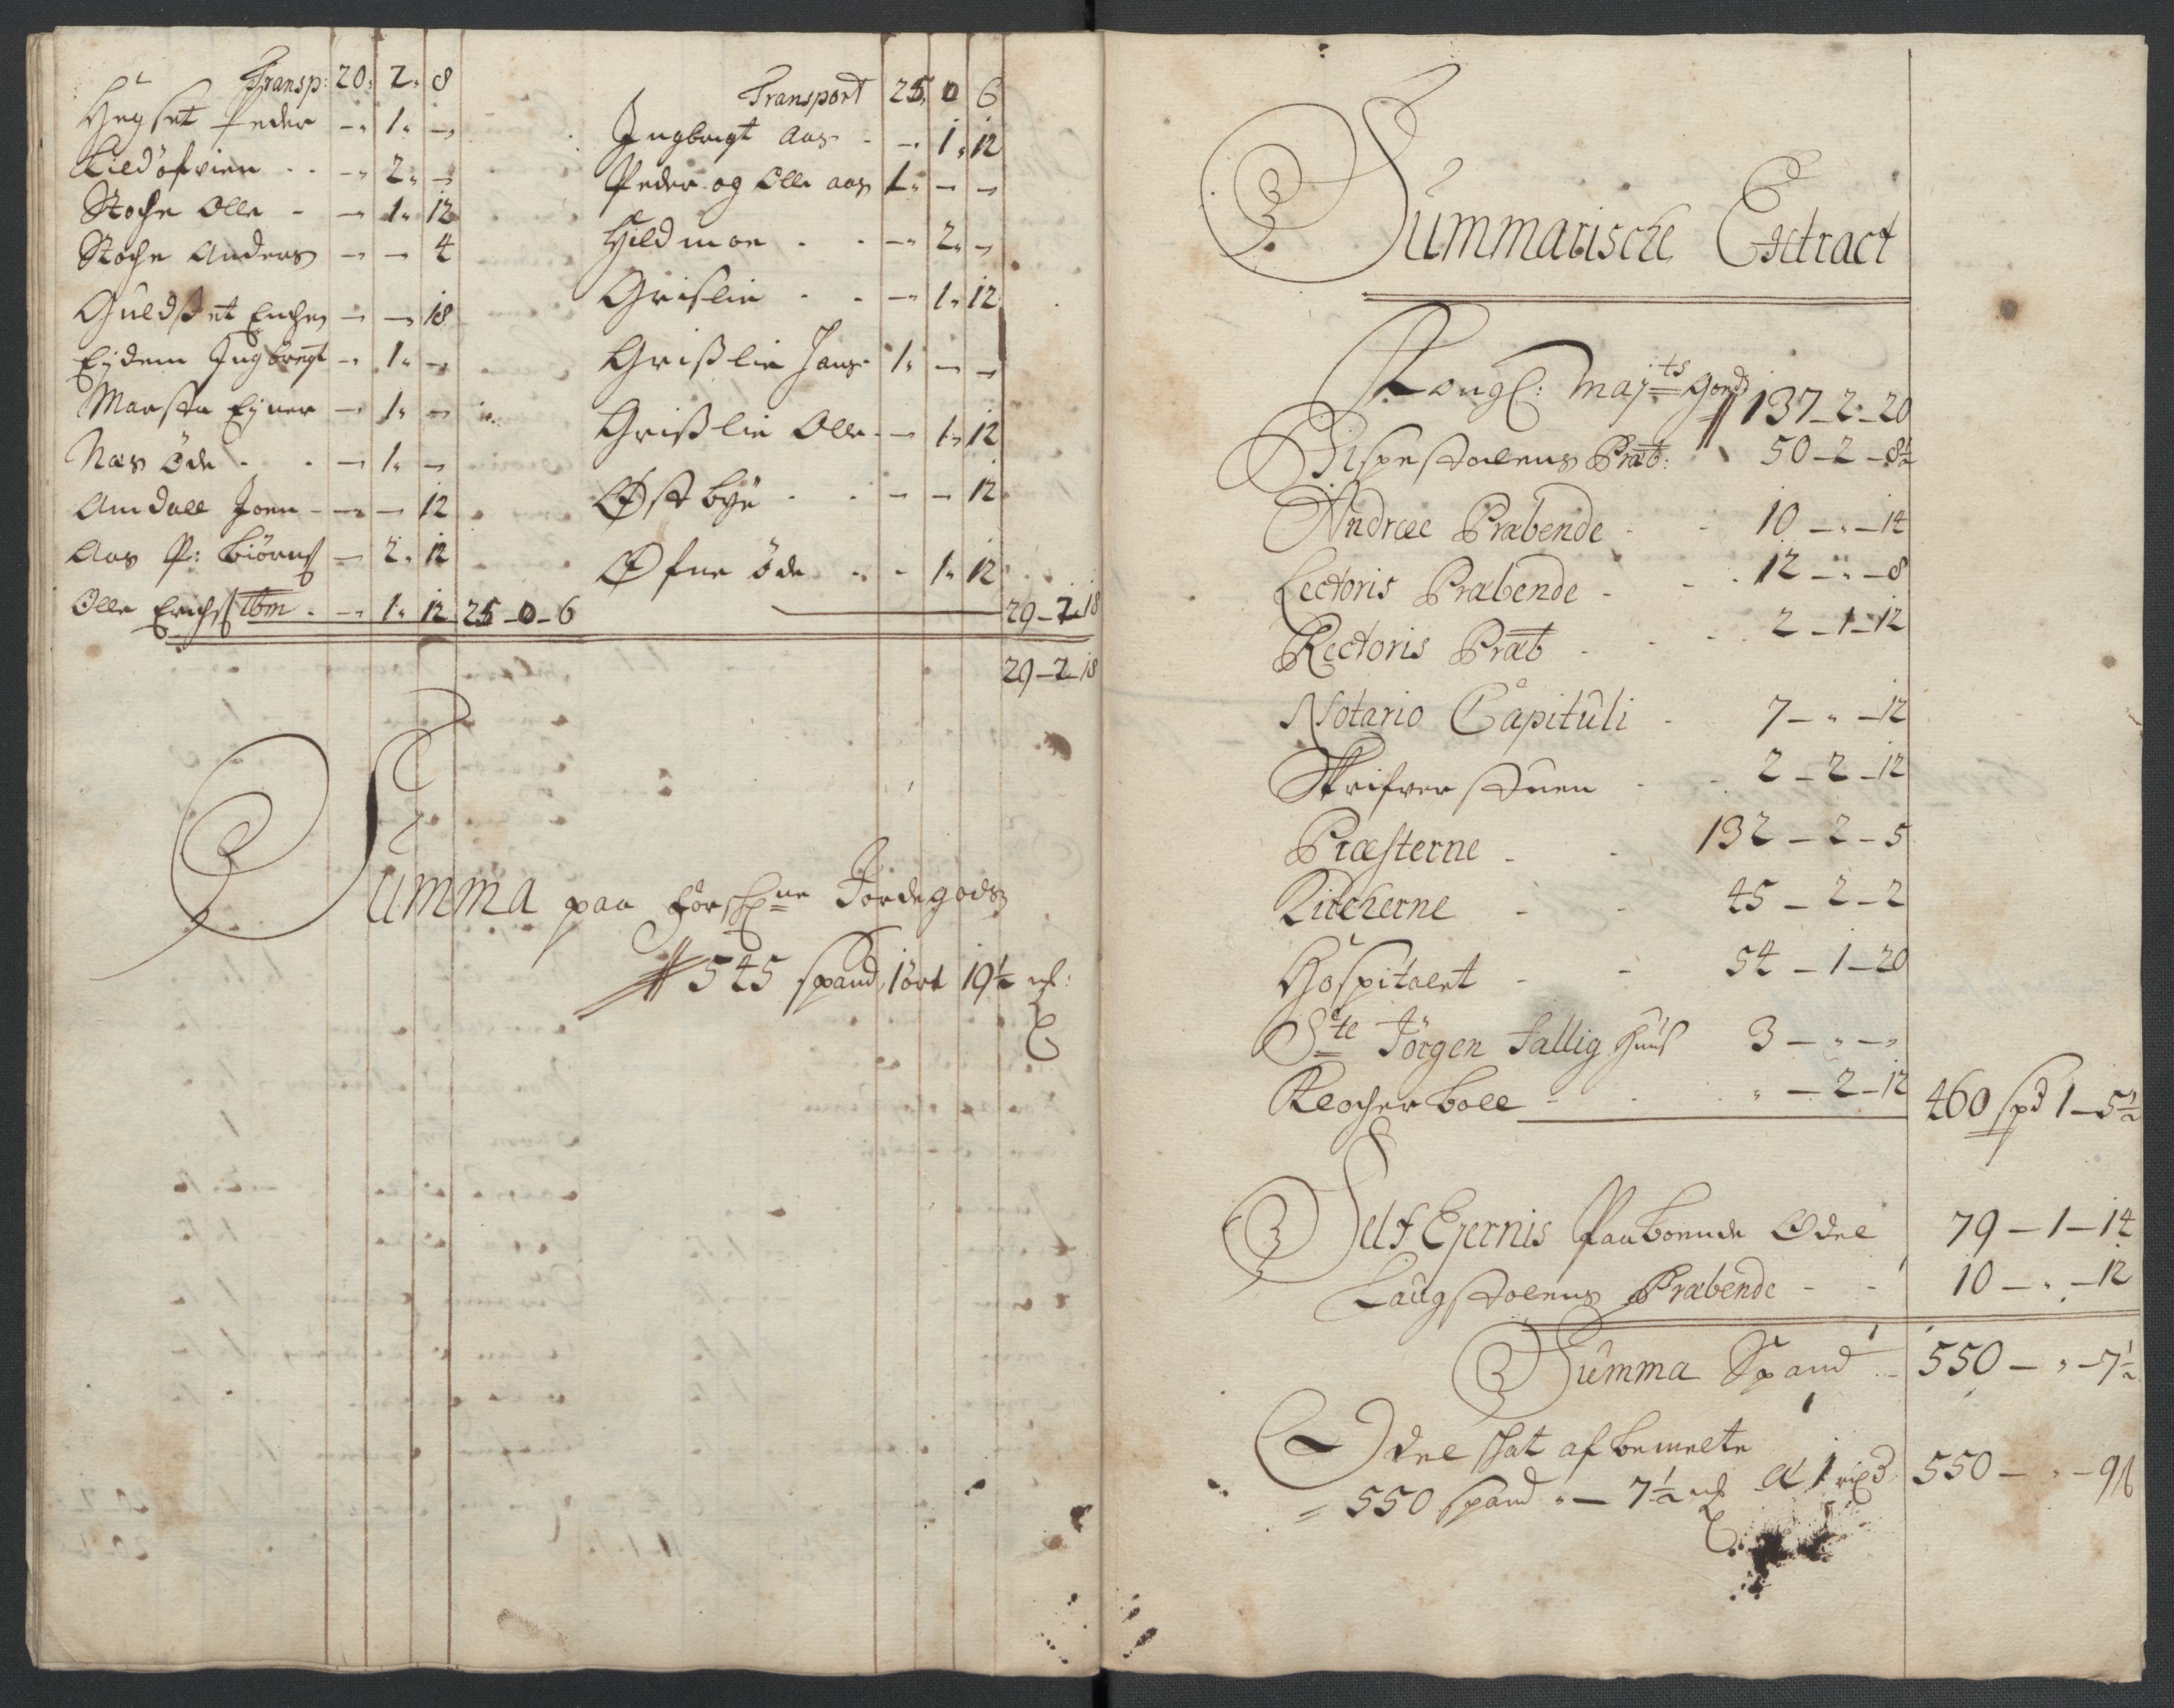 Transp: 20 " 2 " 8
Hegset Peder — " 1 " —
Kildøfvien — " 2 " —
Stoche Olle — " 1 " 12
Stoche Anders — " — 4
Guldset Enchen — " — 18
Eijdem Ingbrigt — " 1 " —
Marsta Ejner — " 1 " —
Næs Öde — " 1 " —
Amdall Joen — — 12
Aas P: Biörns — 2 " 12
Olle Erichs Ibm — " 1 " 12 25 — 0 — 6
Transport 25 " 0 6
Ingbrigt Aas — " 1 " 12
Peder og Olle aas 1 " — —
Hildmoe — " 2 " —
Grislie — " 1 " 12
Grißlie Jans 1 " — —
Grißlie Olle — 1 " 12
Østbye — — 12
Øfne öde 1 " 12
29 — 2 — 18
29 — 2 — 18
Summa paa forschne Jordegods
545 spand 1 ört 19½
Summarische Extract
Kongl: Majts Gods 137 — 2 — 20
Bispestolens Præb: 50 — 2 — 8½
Andreæ Præbende 10 — " — 14
Lectoris Præbende 12 — " — 8
Rectoris Præb 2 — 1 — 12
Notario Capituli 7 — " — 12
Skrifverstuen 2 — 2 — 12
Præsterne 132 — 2 — 5
Kircherne 45 — 2 — 2
Hospitalet 54 — 1 — 20
Ste Jörgen fattig Huus 3 — " — "
Klocherboll " — 2 — 12 460 spd 1 — 5½
Self Ejernis Paaboende Odel 79 — 1 — 14
Laugstolens Præbende 10 — " — 12
Summa Spand 550 — " — 7½
Odel skat af bemelte
550 spand " — 7½ a 1 rixd 550 — " — 9ß